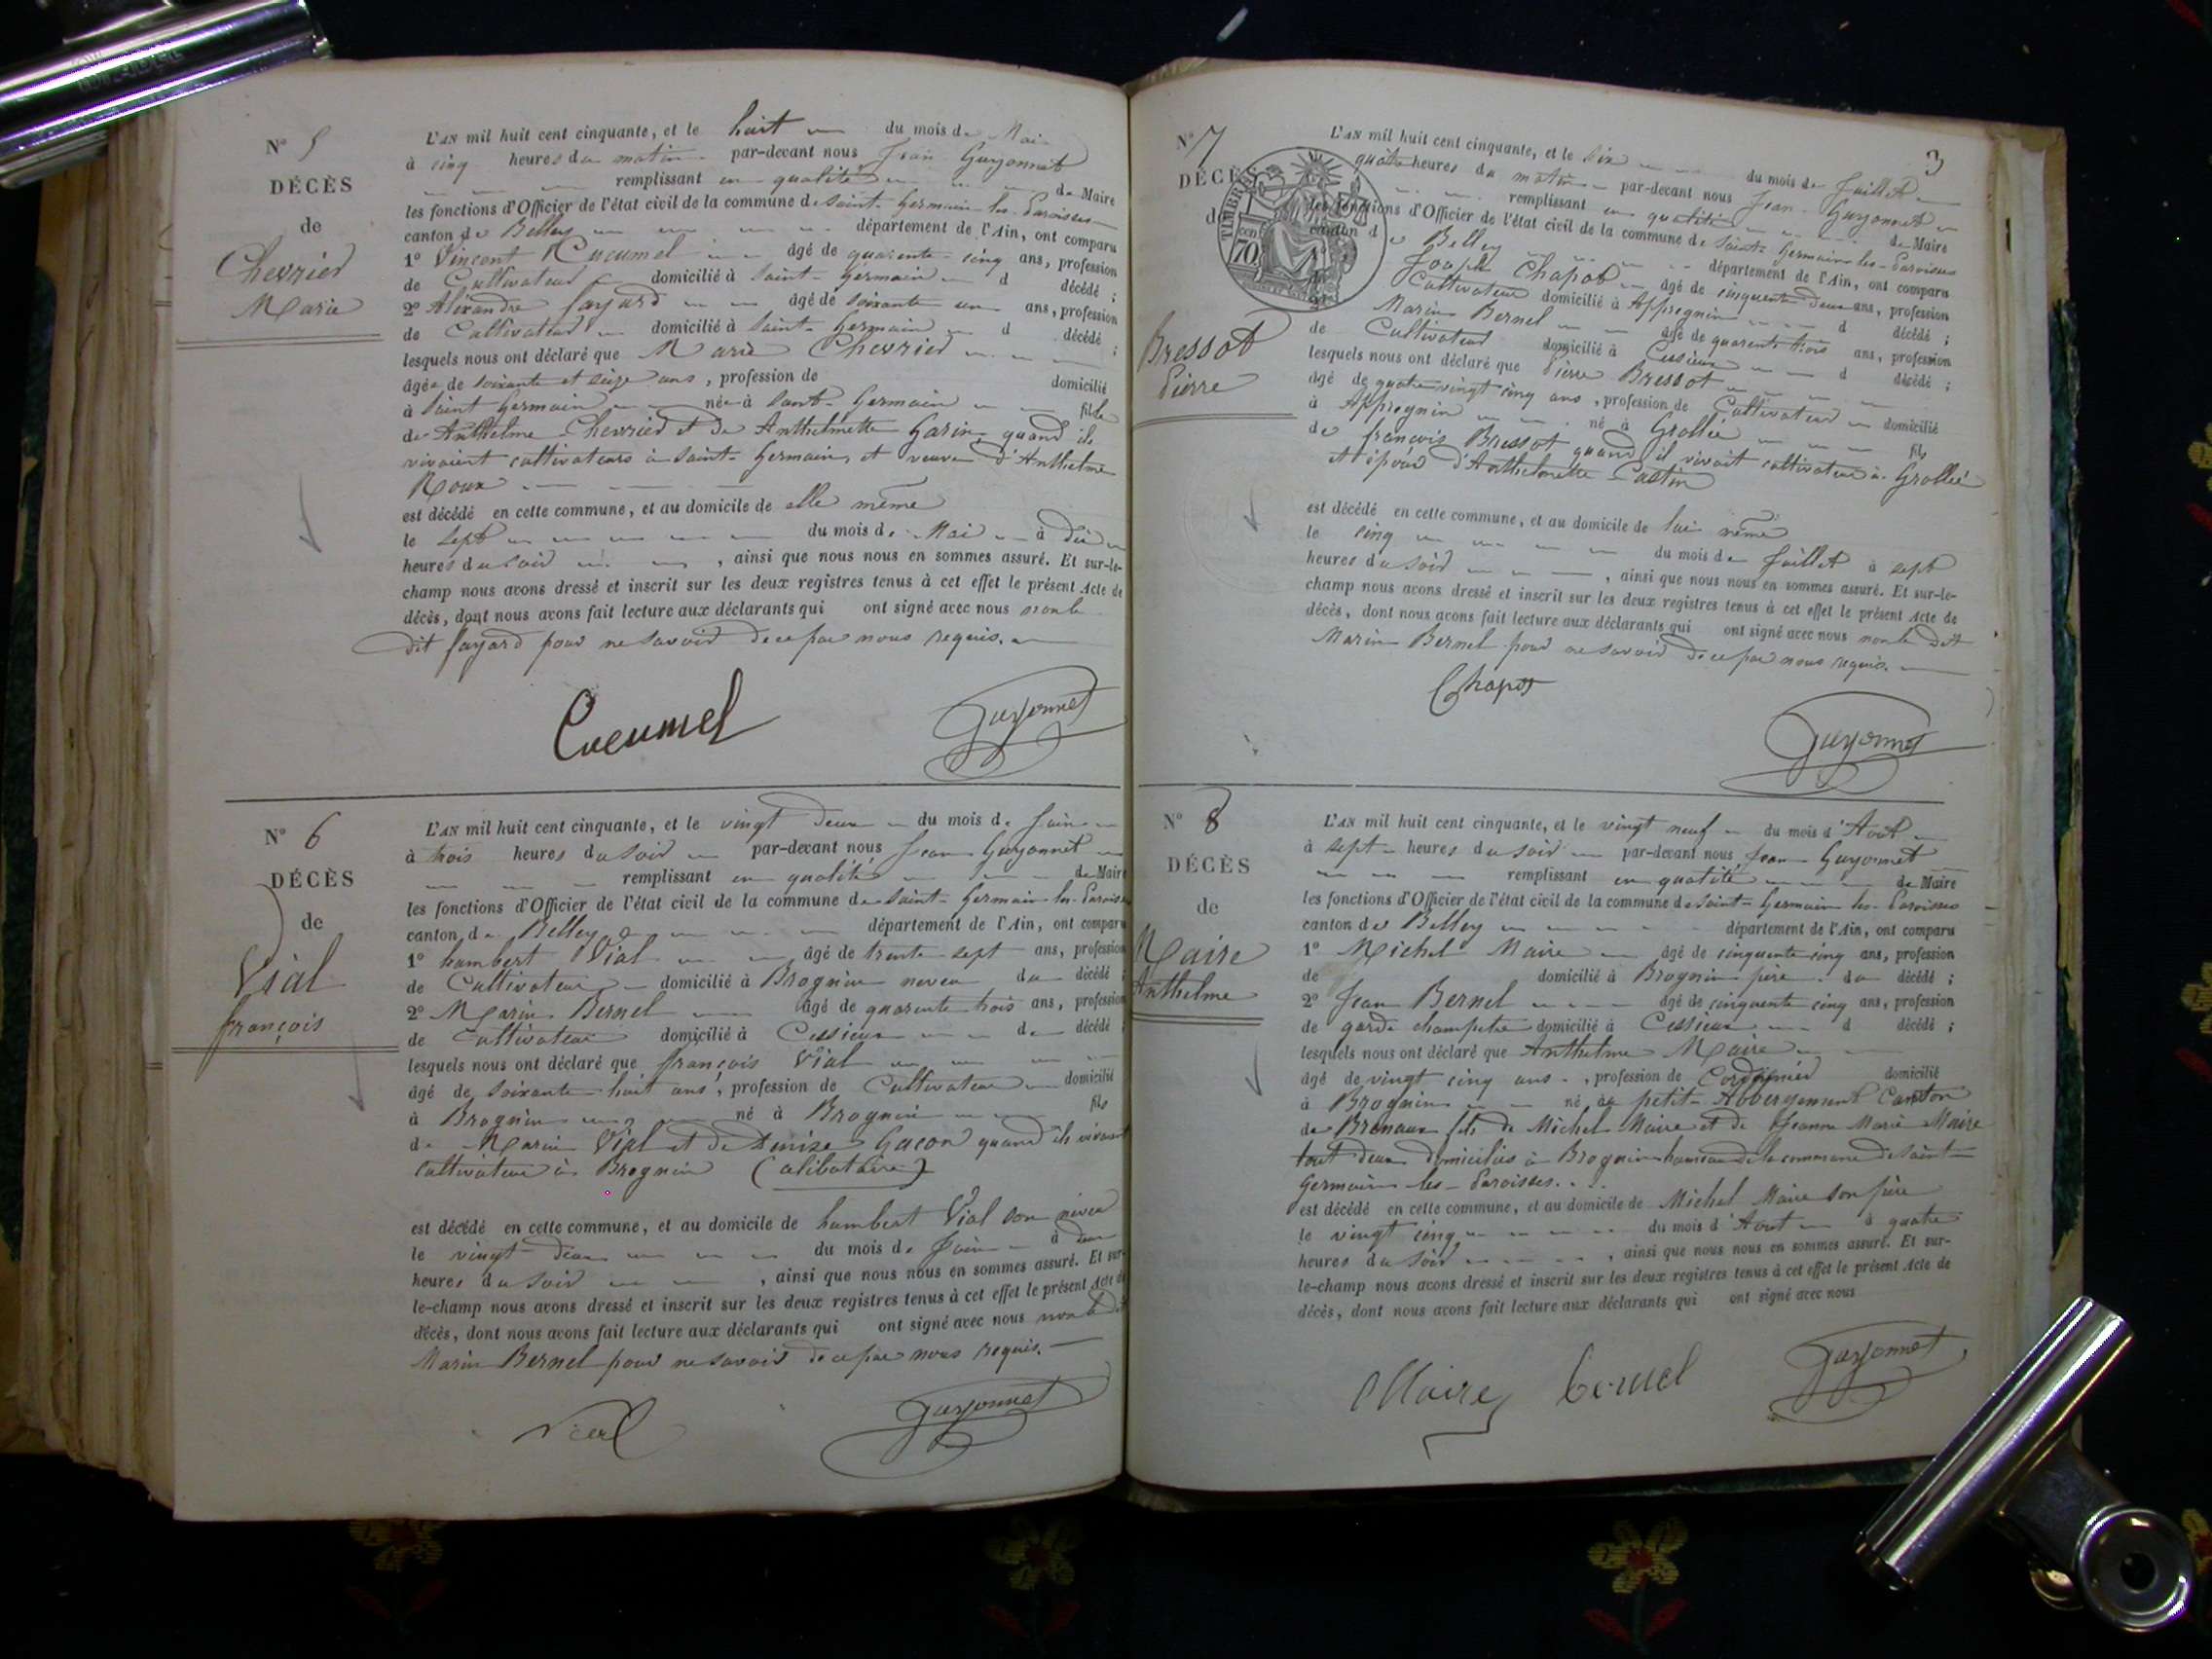 N° 5
DÉCÈS
de
Chevrier
Marie
L'AN mil huit cent cinquante, et le huit du mois de Mai
à cinq heures du matin par-devant nous Jean Guyonnet
remplissant en qualité de Maire
les fonctions d'Officier de l'état civil de la commune de Saint-Germain-les-Paroisses
canton de Belley département de l'Ain, ont comparu
1° Vincent Cucumel âgé de quarente cinq ans, profession
de Cultivateur domicilié à Saint-Germain d décédé ;
2° Alexandre fayard âgé de soixante un ans, profession
de Cultivateur domicilié à Saint-Germain d décédé ;
lesquels nous ont déclaré que Marie Chevrier
âgée de soixante et seize ans, profession de domicilié
à Saint Germain née à Saint-Germain fille
de Anthelme Chevrier et de Anthelmette Garin, quand ils
vivaient cultivateurs à Saint-Germain, et veuve d'Anthelme
Roux
est décédé en cette commune, et au domicile de elle même
le sept du mois de Mai à dix
heures du soir , ainsi que nous nous en sommes assuré. Et sur-le-
champ nous avons dressé et inscrit sur les deux registres tenus à cet effet le présent Acte de
décès, dont nous avons fait lecture aux déclarants qui ont signé avec nous non le
dit fayard pour ne savoir de ce par nous requis.
Cucumel Guyonnet
N° 6
DÉCÈS
de
Vial
françois
L'AN mil huit cent cinquante, et le vingt deux du mois de Juin
à trois heures du soir par-devant nous Jean Guyonnet
remplissant en qualité de Maire
les fonctions d'Officier de l'état civil de la commune de Saint-Germain-les-Paroisses
canton de Belley département de l'Ain, ont comparu
1° humbert Vial âgé de trente sept ans, profession
de Cultivateur domicilié à Brognin neveu du décédé ;
2° Marin Bernel âgé de quarente trois ans, profession
de Cultivateur domicilié à Cessieux d décédé ;
lesquels nous ont déclaré que françois Vial
âgé de soixante huit ans, profession de Cultivateur domicilié
à Brognin né à Brognin fils
de Marin Vial et de Denize Gacon quand ils vivaient
Cultivateur à Brognin (célibataire)
est décédé en cette commune, et au domicile de humbert Vial son neveu
le vingt-deux du mois de Juin à deux
heures du soir , ainsi que nous nous en sommes assuré. Et sur-
le-champ nous avons dressé et inscrit sur les deux registres tenus à cet effet le présent Acte de
décès, dont nous avons fait lecture aux déclarants qui ont signé avec nous non le dit
Marin Bernel pour ne savoir de ce par nous requis.
Vial Guyonnet
3
N° 7
DÉCÈS
de
TIMBRE
70 cen
Bressot
Pierre
L'AN mil huit cent cinquante, et le six du mois de Juillet
quatre heures du matin par-devant nous Jean Guyonnet
remplissant en qualité de Maire
les fonctions d'Officier de l'état civil de la commune de Saint-Germain-les-Paroisses
canton de Belley département de l'Ain, ont comparu
Joseph Chapot âgé de cinquante deux ans, profession
Cultivateur domicilié à Appregnin d décédé ;
2° Marin Bernel âgé de quarente trois ans, profession
de Cultivateur domicilié à Cessieux d décédé ;
lesquels nous ont déclaré que Pierre Bressot
âgé de quatre vingt cinq ans, profession de Cultivateur domicilié
à Appregnin né à Grollée fils
de françois Bressot quand il vivait cultivateur à Grollée
et époux d'Anthelmette Castin
est décédé en cette commune, et au domicile de lui même
le cinq du mois de Juillet à sept
heures du soir , ainsi que nous nous en sommes assuré. Et sur-le-
champ nous avons dressé et inscrit sur les deux registres tenus à cet effet le présent Acte de
décès, dont nous avons fait lecture aux déclarants qui ont signé avec nous non le dit
Marin Bernel pour ne savoir de ce par nous requis.
Chapot
Guyonnet
N° 8
DÉCÈS
de
Maire
Anthelme
L'AN mil huit cent cinquante, et le vingt neuf du mois d'Août
à sept heures du soir par-devant nous Jean Guyonnet
remplissant en qualité de Maire
les fonctions d'Officier de l'état civil de la commune de Saint-Germain-les-Paroisses
canton de Belley département de l'Ain, ont comparu
1° Michel Maire âgé de cinquente cinq ans, profession
de domicilié à Brognin père du décédé ;
2° Jean Bernel âgé de cinquente cinq ans, profession
de garde champetre domicilié à Cessieux d décédé ;
lesquels nous ont déclaré que Anthelme Maire
âgé de vingt cinq ans, profession de Cordonnier domicilié
à Brognin né au petit-Abbergement Canton
de Brénaux fils de Michel Maire et de Jeanne Marie Maire
tout deux domiciliés à Brognin hameau de la commune de Saint-
Germain-les-Paroisses.
est décédé en cette commune, et au domicile de Michel Maire son père
le vingt cinq du mois d'Aout à quatre
heures du soir , ainsi que nous nous en sommes assuré. Et sur-
le-champ nous avons dressé et inscrit sur les deux registres tenus à cet effet le présent Acte de
décès, dont nous avons fait lecture aux déclarants qui ont signé avec nous
Maire bernel Guyonnet